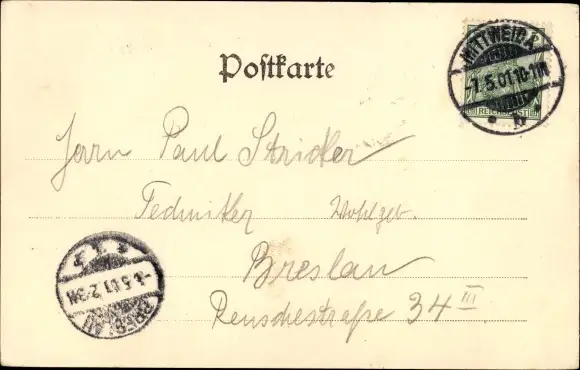 Postkarte
MITTWEIDA
-1.5.01.10-11V
REICHSPOST
b
Herrn Paul Stricker
Techniker Wohlgeb.
Breslau
Reuschestraße 34 III
BRESLAU